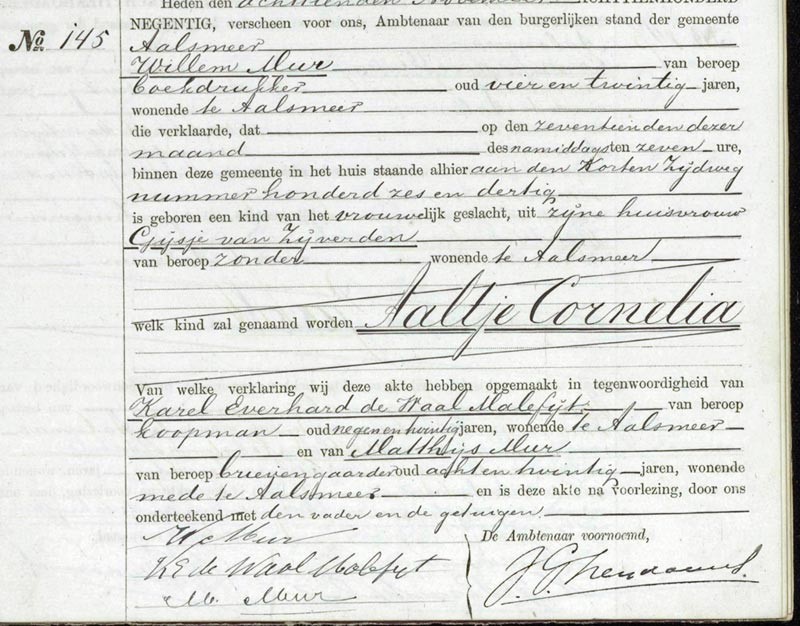 Heden den achttienden November ACHTTIENHONDERD
NEGENTIG, verscheen voor ons, Ambtenaar van den burgerlijken stand der gemeente
No. 145 Aalsmeer
Willem Mur van beroep
boekdrukker oud vier en twintig jaren,
wonende te Aalsmeer
die verklaarde, dat op den zeventienden dezer
maand des namiddags ten zeven ure,
binnen deze gemeente in het huis staande alhier aan den Korten Zijdweg
nummer honderd zes en dertig
is geboren een kind van het vrouwelijk geslacht, uit zijne huisvrouw
Gijsje van Zijverden
van beroep zonder wonende te Aalsmeer
welk kind zal genaamd worden Aaltje Cornelia
Van welke verklaring wij deze akte hebben opgemaakt in tegenwoordigheid van
Karel Everhard de Waal Malefijt van beroep
koopman oud negen en twintig jaren, wonende te Aalsmeer
en van Matthijs Mur
van beroep brievengaarder oud acht en twintig jaren, wonende
mede te Aalsmeer en is deze akte na voorlezing, door ons
onderteekend met den vader en de getuigen
W. Mur
De Ambtenaar voornoemd,
KE de Waal Malefijt
M. Mur